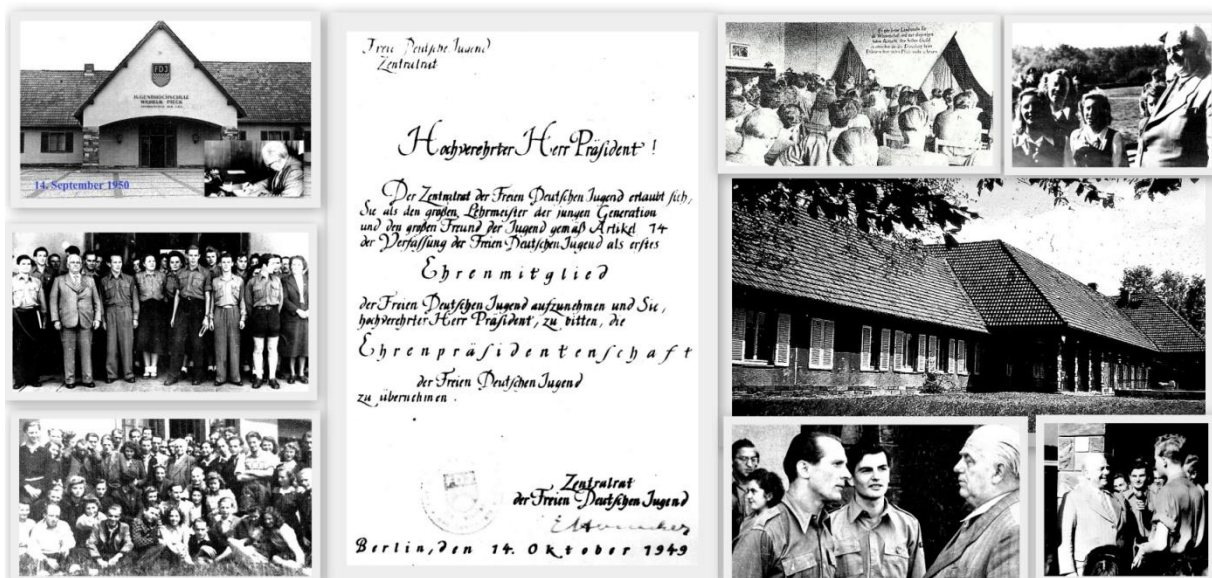 FDJ
JUGENDHOCHSCHULE
WILHELM PIECK
14. September 1950
Freie Deutsche Jugend
Zentralrat
Hochverehrter Herr Präsident !
Der Zentralrat der Freien Deutschen Jugend erlaubt sich,
Sie als den großen Lehrmeister der jungen Generation
und den großen Freund der Jugend gemäß Artikel 14
der Verfassung der Freien Deutschen Jugend als erstes
Ehrenmitglied
der Freien Deutschen Jugend aufzunehmen und Sie,
hochverehrter Herr Präsident, zu bitten, die
Ehrenpräsidentenschaft
der Freien Deutschen Jugend
zu übernehmen.
Zentralrat
der Freien Deutschen Jugend
E Honecker
Berlin, den 14. Oktober 1949